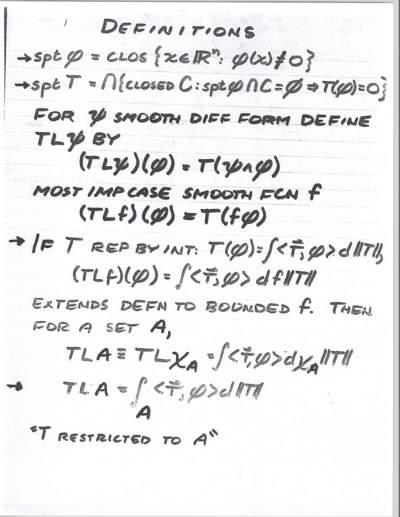 DEFINITIONS
→ spt φ = CLOS {x∈ℝⁿ: φ(x)≠0}
→ spt T = ∩{CLOSED C: spt φ ∩ C = ∅ ⇒ T(φ)=0}
FOR ψ SMOOTH DIFF FORM DEFINE
T∟ψ BY
(T∟ψ)(φ) = T(ψ∧φ)
MOST IMP CASE SMOOTH FCN f
(T∟f)(φ) = T(fφ)
→ IF T REP BY INT: T(φ)=∫<T⃗,φ> d‖T‖,
(T∟f)(φ) = ∫<T⃗,φ> df‖T‖
EXTENDS DEFN TO BOUNDED f. THEN
FOR A SET A,
T∟A ≡ T∟χ_A = ∫<T⃗,φ>dχ_A‖T‖
→ T∟A = ∫<T⃗,φ>d‖T‖
A
"T RESTRICTED TO A"